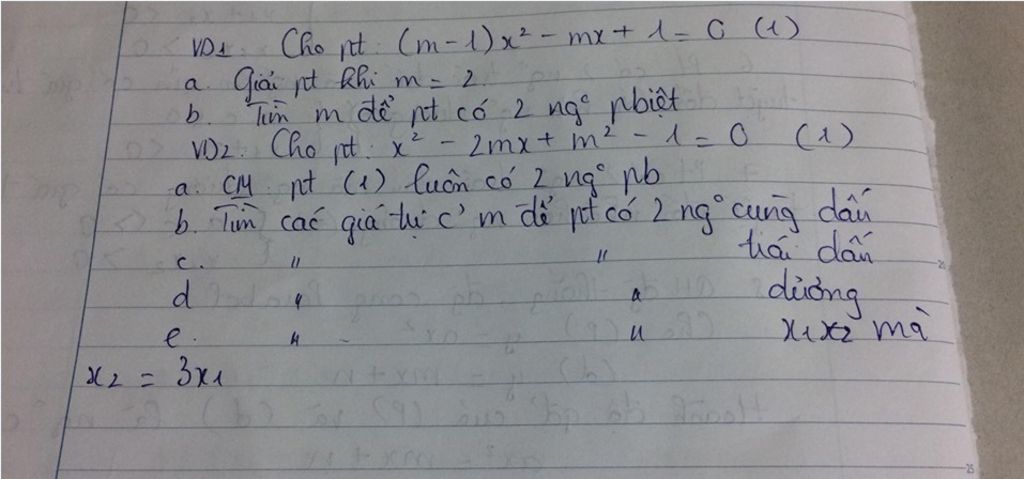 VD1. Cho pt: (m-1)x² - mx + 1 = 0 (1)
a. Giải pt khi m = 2.
b. Tìm m để pt có 2 ngº pbiệt
VD2. Cho pt: x² - 2mx + m² - 1 = 0 (1)
a. CM pt (1) luôn có 2 ngº pb
b. Tìm các giá trị c' m để pt có 2 ngº cùng dấu
c. " " trái dấu
d " " dương
e. " " x1x2 mà
x2 = 3x1